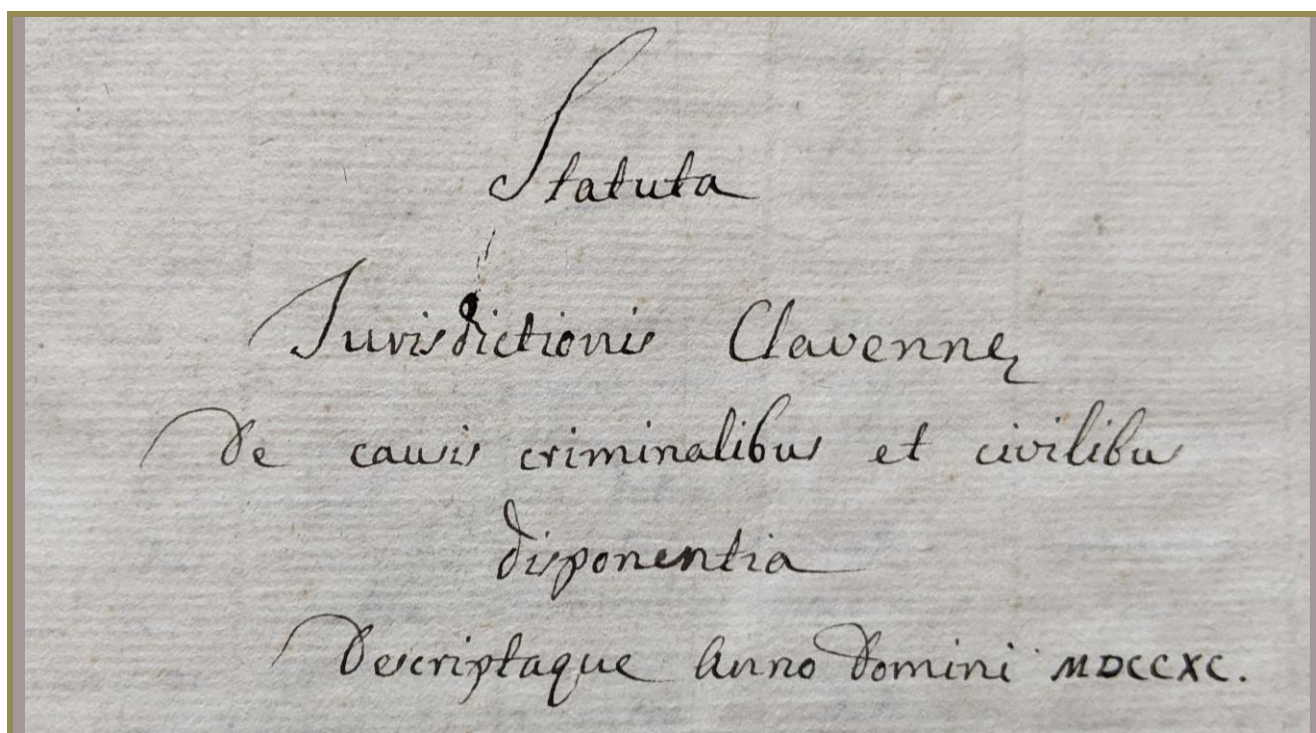 Statuta
Jurisdictionis Clavennę
De causis criminalibus et civilibus
disponentia
Descriptaque Anno Domini MDCCXC.